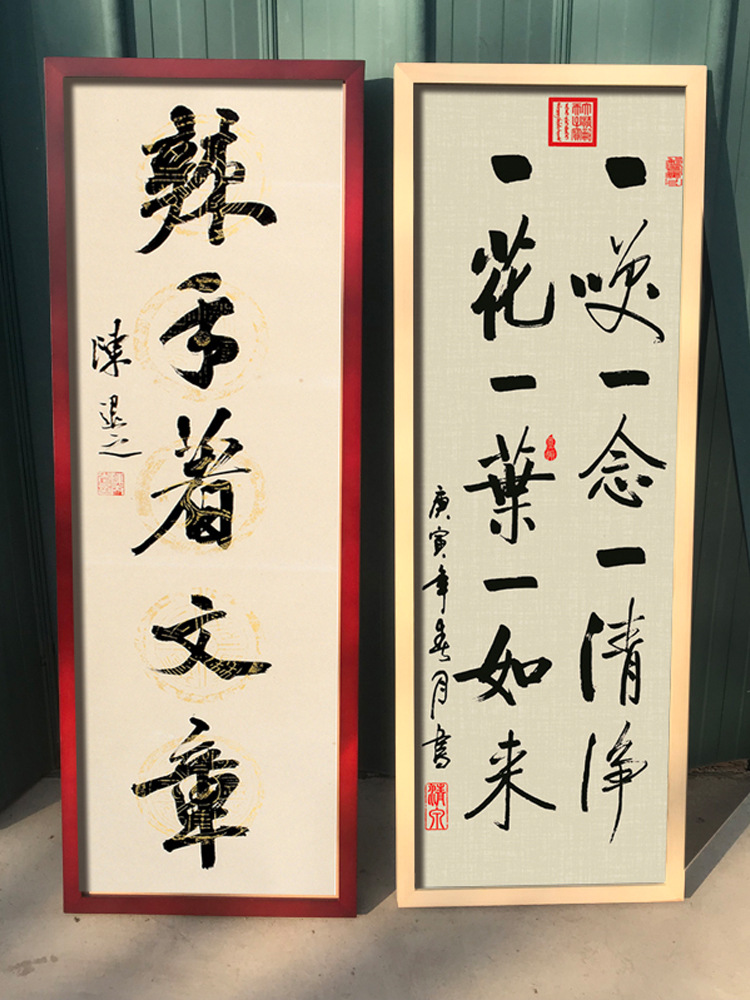 辣手着文章
陳退之
一咲一念一清净
一花一葉一如来
庚寅年春月書